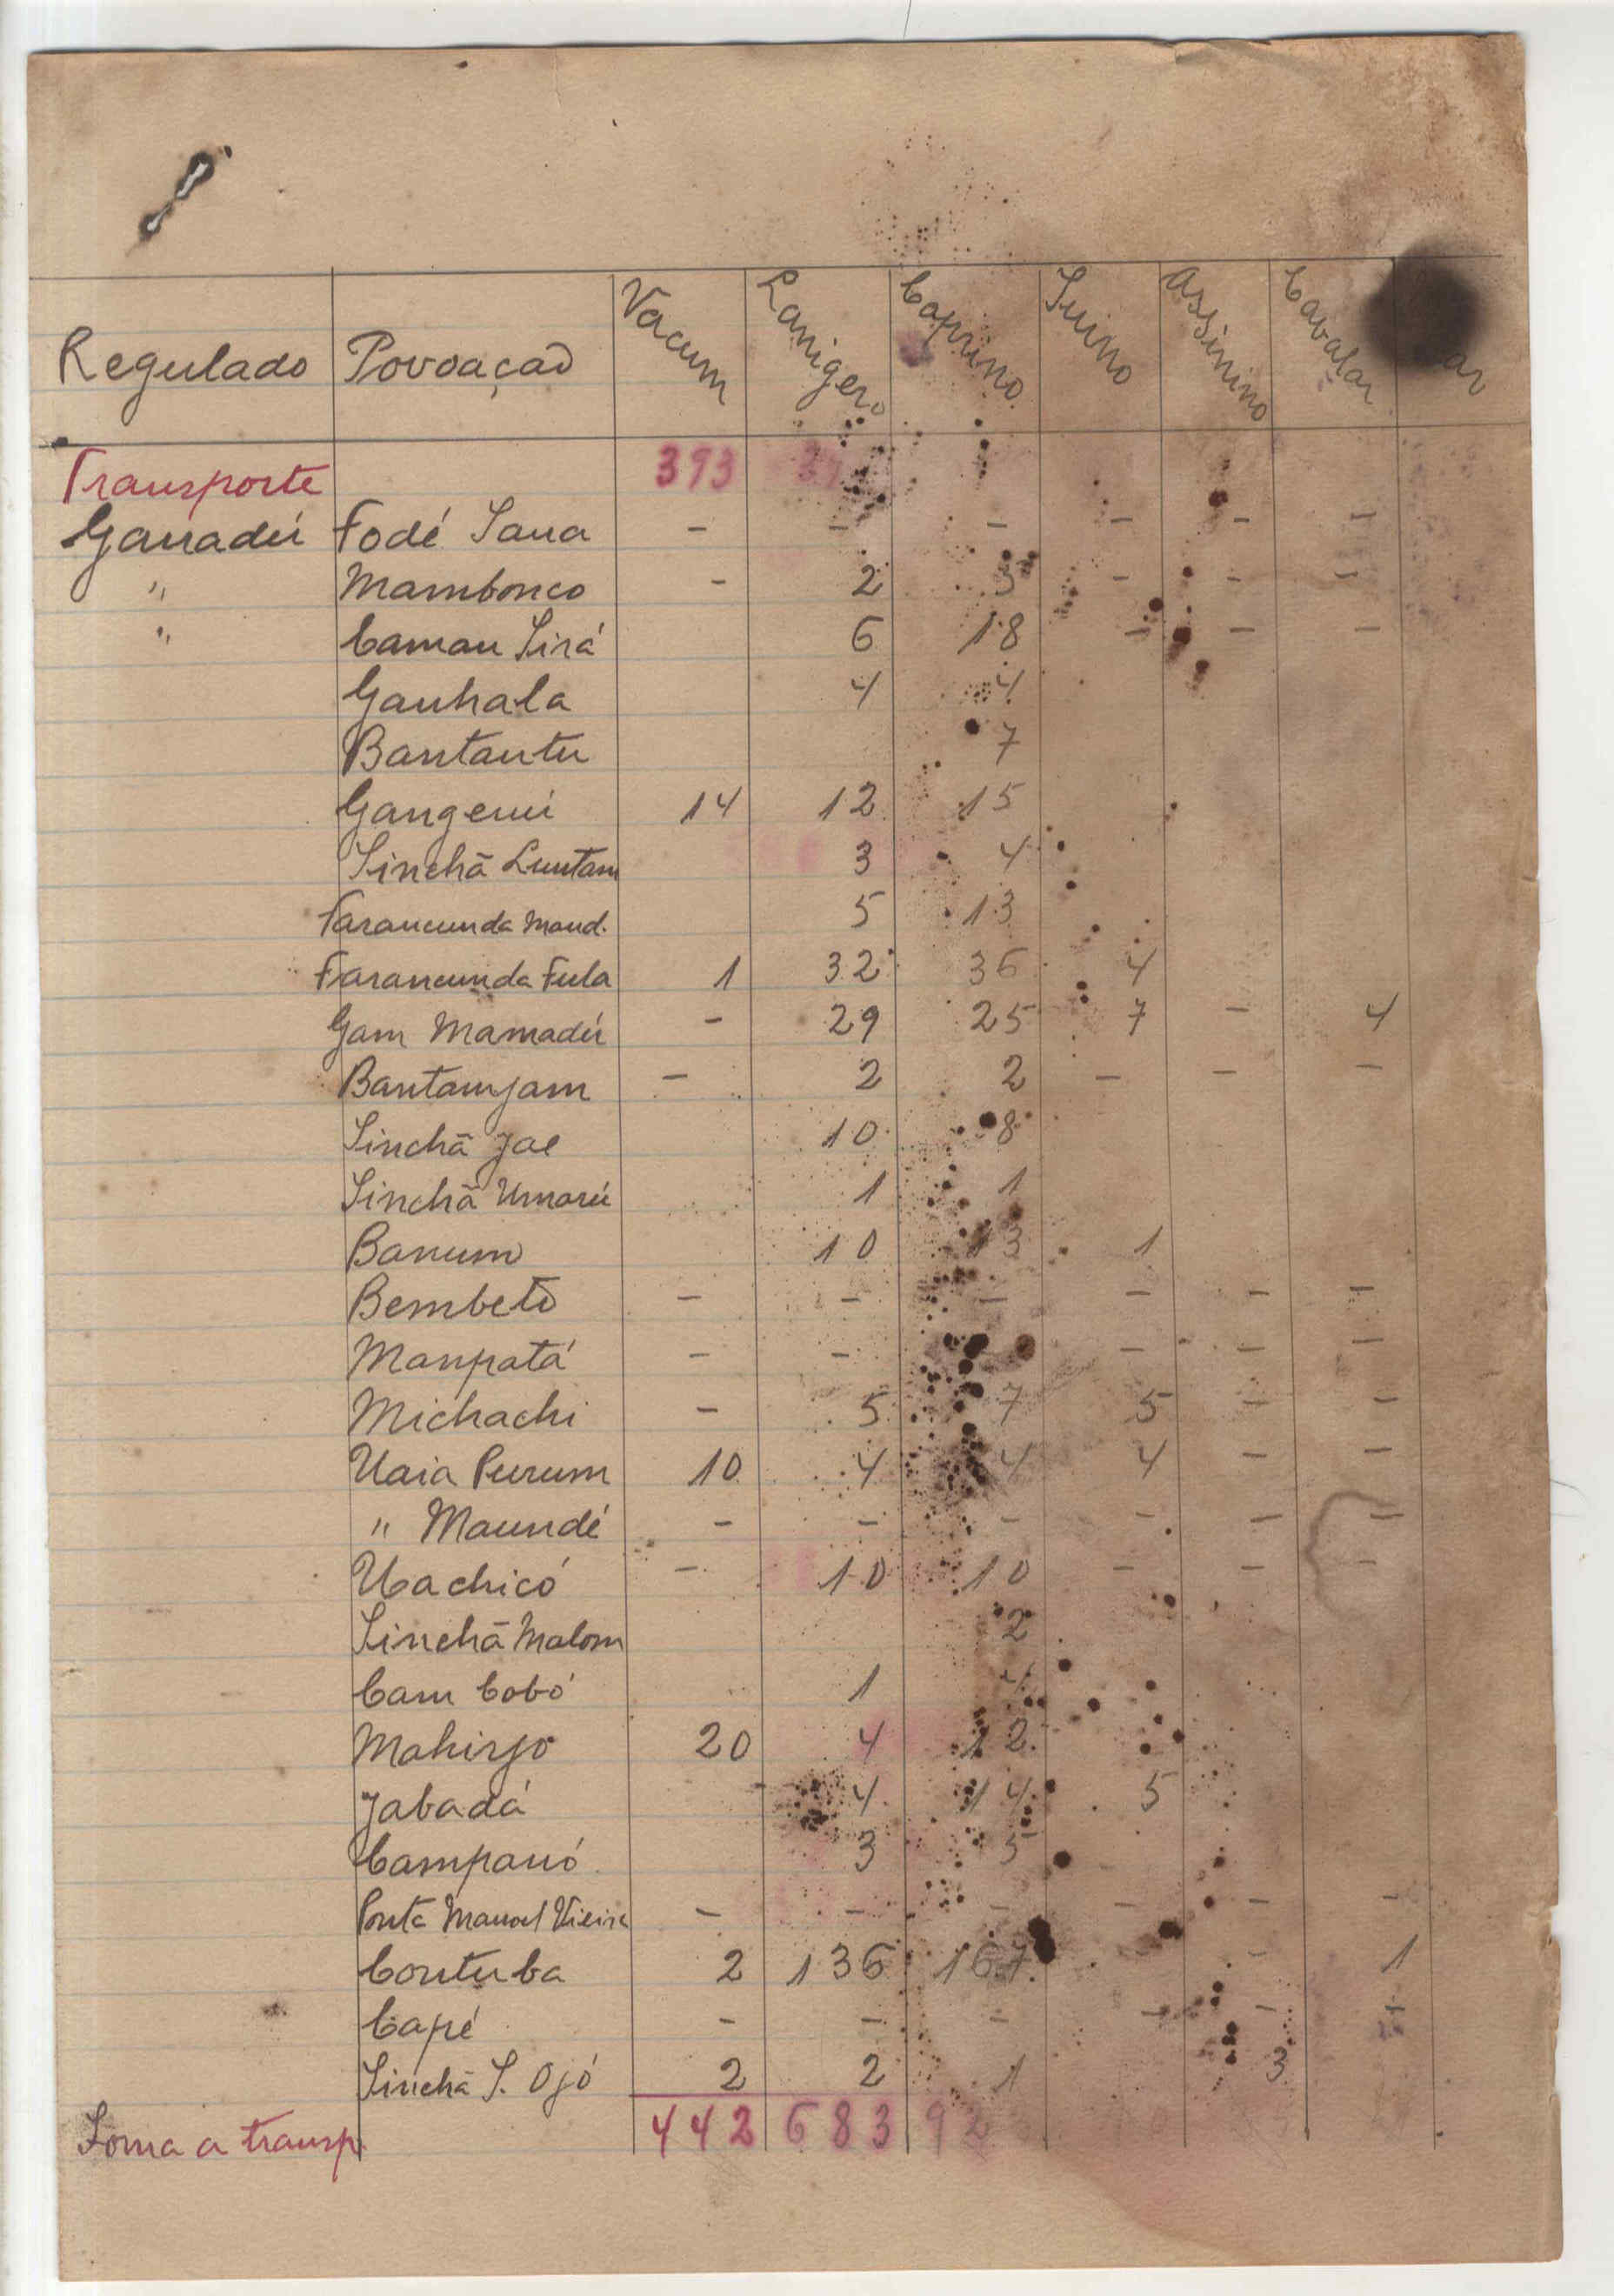 Regulado Povoação Vacum Lanigero Caprino Suino Assinino Cavalar
Transporte 393
Ganadú Fodé Sana - - - - - -
" Mambonco - 2 3 - - -
" Caman Sirá 6 18 - - -
Ganhala 4 4
Bantantu 7
Gangenú 14 12 15
Sinchã Luntam 3 4
Farancunda Mand. 5 13
Farancunda Fula 1 32 36 4
Gam Mamadú - 29 25 7 - 4
Bantamjam - 2 2 - - -
Sinchã Jae 10 8
Sinchã Umarú 1 1
Banum 10 13 1
Bembetō - - - - - -
Manpatá - - - - -
Michachi - 5 7 5 - -
Uaia Purum 10 4 4 4 - -
" Maundé - - - - - -
Uachicó - 10 10 - - -
Sinchã Malom 2
Cam Cobó 1 4
Mahirjo 20 4 12
Jabadá 4 14 5
Campanó 3 5
Ponta Manoel Vieira - - - - - -
Contuba 2 136 167 - - 1
Capé - - - - - -
Sinchã S. Ojó 2 2 1 3
Soma a transp. 442 683